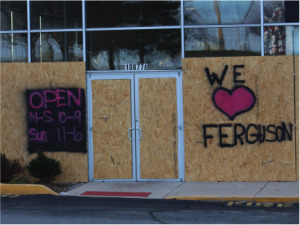 10877A
OPEN
M-S 10-9
Sun 11-6
WE
FERGUSON